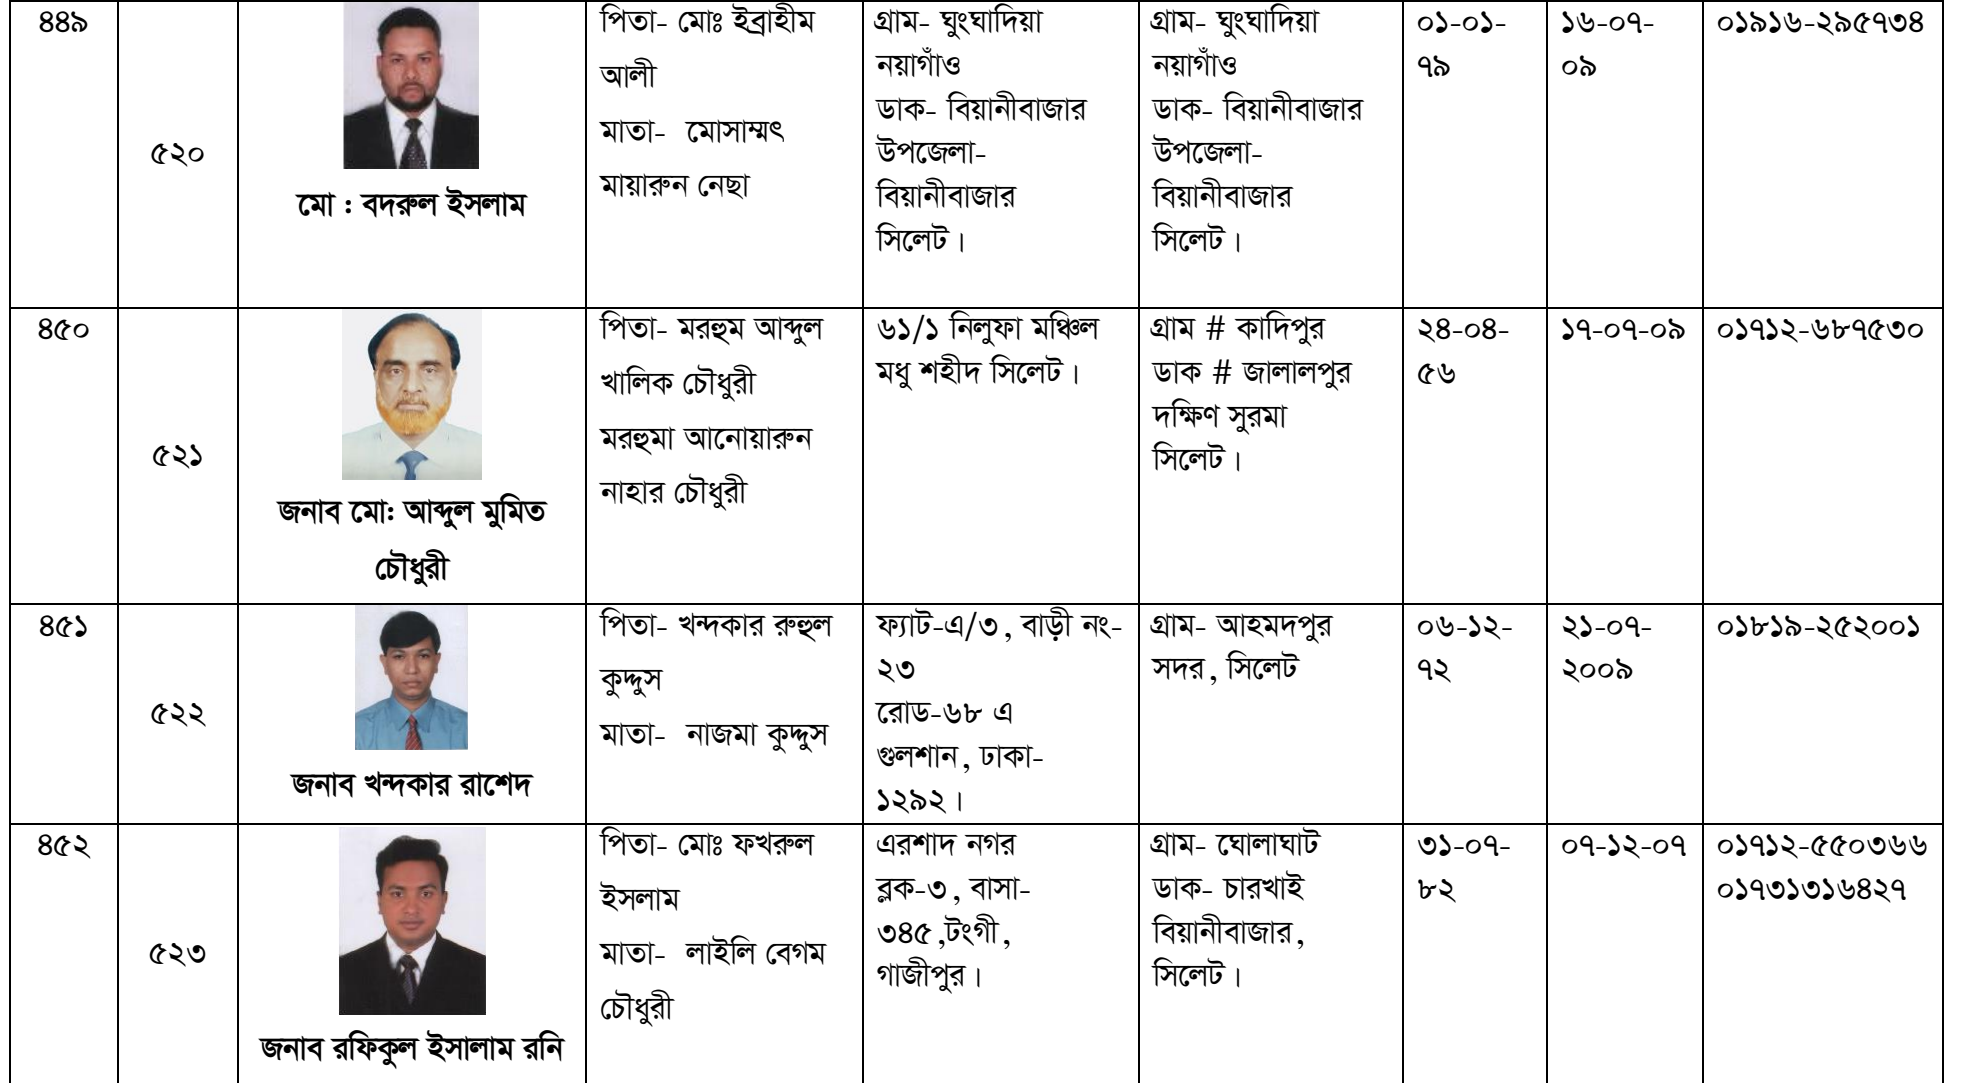 ৪৪৯
৫২০
মো : বদরুল ইসলাম
পিতা- মোঃ ইব্রাহীম
আলী
মাতা- মোসাম্মৎ
মায়ারুন নেছা
গ্রাম- ঘুংঘাদিয়া
নয়াগাঁও
ডাক- বিয়ানীবাজার
উপজেলা-
বিয়ানীবাজার
সিলেট।
গ্রাম- ঘুংঘাদিয়া
নয়াগাঁও
ডাক- বিয়ানীবাজার
উপজেলা-
বিয়ানীবাজার
সিলেট।
০১-০১-
৭৯
১৬-০৭-
০৯
০১৯১৬-২৯৫৭৩৪
৪৫০
৫২১
জনাব মো: আব্দুল মুমিত
চৌধুরী
পিতা- মরহুম আব্দুল
খালিক চৌধুরী
মরহুমা আনোয়ারুন
নাহার চৌধুরী
৬১/১ নিলুফা মঞ্চিল
মধু শহীদ সিলেট।
গ্রাম # কাদিপুর
ডাক # জালালপুর
দক্ষিণ সুরমা
সিলেট।
২৪-০৪-
৫৬
১৭-০৭-০৯
০১৭১২-৬৮৭৫৩০
৪৫১
৫২২
জনাব খন্দকার রাশেদ
পিতা- খন্দকার রুহুল
কুদ্দুস
মাতা- নাজমা কুদ্দুস
ফ্যাট-এ/৩, বাড়ী নং-
২৩
রোড-৬৮ এ
গুলশান, ঢাকা-
১২৯২।
গ্রাম- আহমদপুর
সদর, সিলেট
০৬-১২-
৭২
২১-০৭-
২০০৯
০১৮১৯-২৫২০০১
৪৫২
৫২৩
জনাব রফিকুল ইসালাম রনি
পিতা- মোঃ ফখরুল
ইসলাম
মাতা- লাইলি বেগম
চৌধুরী
এরশাদ নগর
ব্লক-৩, বাসা-
৩৪৫,টংগী,
গাজীপুর।
গ্রাম- ঘোলাঘাট
ডাক- চারখাই
বিয়ানীবাজার,
সিলেট।
৩১-০৭-
৮২
০৭-১২-০৭
০১৭১২-৫৫০৩৬৬
০১৭৩১৩১৬৪২৭